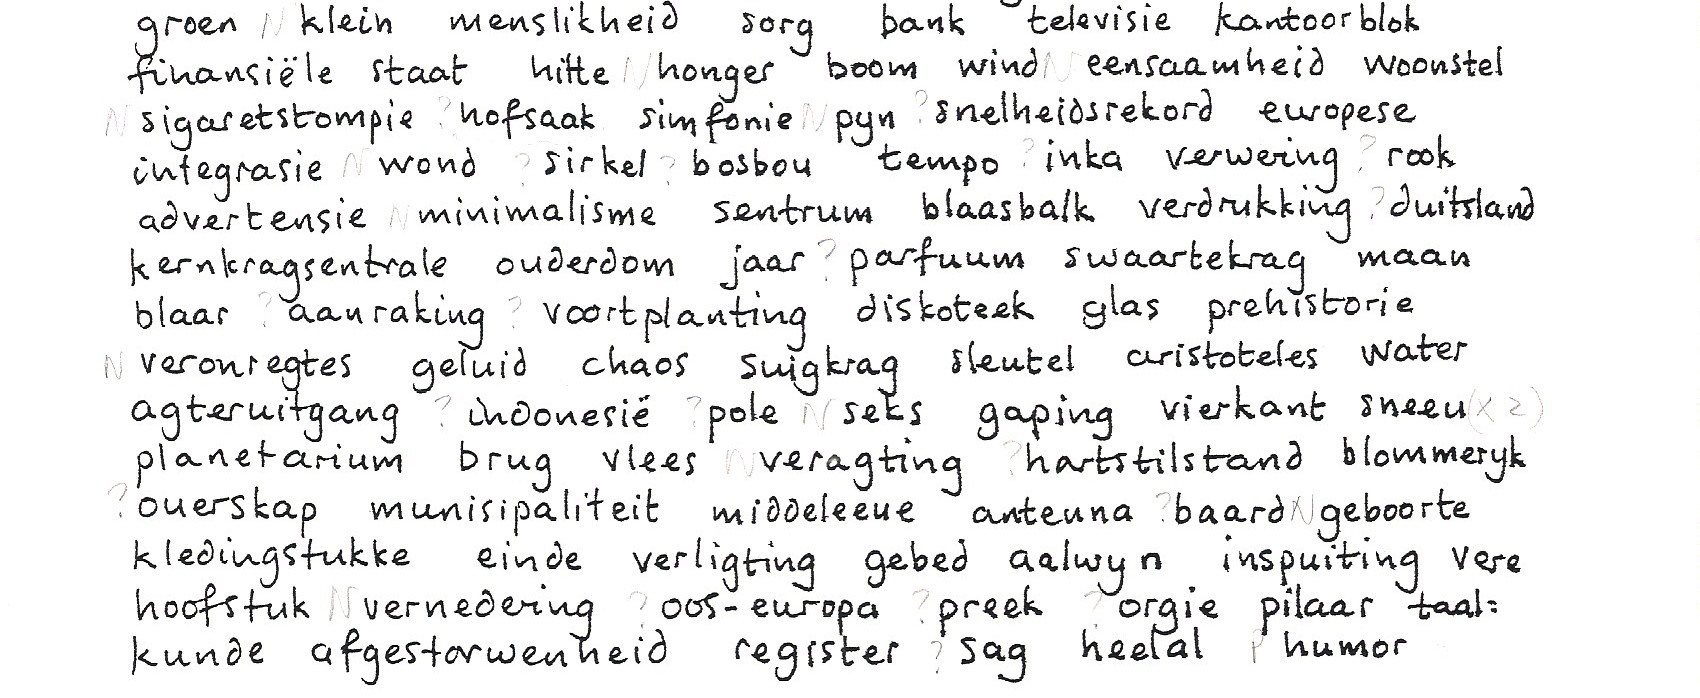 groen N klein menslikheid sorg bank televisie kantoorblok
finansiële staat hitte N honger boom wind N eensaamheid woonstel
N sigaretstompie ? hofsaak simfonie N pyn ? snelheidsrekord europese
integrasie N wond ? sirkel ? bosbou tempo ? inka verwering ? rook
advertensie N minimalisme sentrum blaasbalk verdrukking ? duitsland
kernkragsentrale ouderdom jaar ? parfuum swaartekrag maan
blaar ? aanraking ? voortplanting diskoteek glas prehistorie
N veronregtes geluid chaos suigkrag sleutel aristoteles water
agteruitgang ? indonesië ? pole N seks gaping vierkant sneeu (x 2)
planetarium brug vlees N veragting ? hartstilstand blommeryk
? ouerskap munisipaliteit middeleeue antenna ? baard N geboorte
kledingstukke einde verligting gebed aalwyn inspuiting vere
hoofstuk N vernedering ? oos-europa ? preek ? orgie pilaar taal=
kunde afgestorwenheid register ? sag heelal ? humor